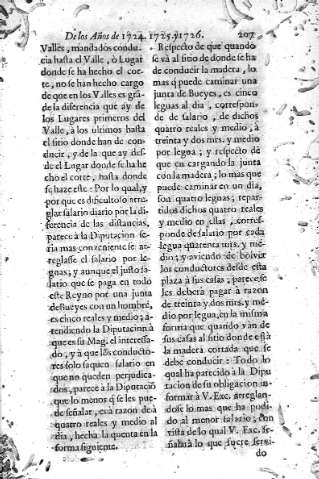 De los Años de 1724. 1725. y 1726. 207
Valles, mandados condu-
cia hasta el Valle, ò Lugar
donde se ha hecho el cor-
te, no se han hecho cargo
de que en los Valles es grã-
de la diferencia que ay de
los Lugares primeros del
Valle, à los ultimos hasta
el sitio donde han de con-
ducir, y de la que ay des-
de el Lugar donde se ha he-
cho el corte, hasta donde
se haze este: Por lo qual, y
por que es dificultoso arre-
glar salario diario por la di-
ferencia de las distancias,
parece à la Diputacion se-
ria mas conveniente se ar-
reglasse el salario por le-
guas; y aunque el justo sa-
lario que se paga en todo
este Reyno por una junta
de Bueyes con un hombre,
es cinco reales y medio; a-
tendiendo la Diputacion à
que es su Mag. el interessa-
do, y à que los conducto-
res solo saquen salario en
que no queden perjudica-
dos, parece à la Diputaciõ
que lo menos q se les pue-
de señalar, es à razon de à
quatro reales y medio al
dia, hecha la quenta en la
forma siguiente.
Respecto de que quando
se và al sitio de donde se ha
de conducir la madera, lo
mas q puede caminar una
junta de Bueyes, es cinco
leguas al dia, correspon-
de de salario, de dichos
quatro reales y medio, à
treinta y dos mrs. y medio
por legua; y respecto de
que en cargando la junta
con la madera; lo mas que
puede caminar en un dia,
son quatro leguas; repar-
tidos dichos quatro reales
y medio en ellas, corres-
ponde de salario por cada
legua quarenta mrs. y me-
dio; y aviendo de bolver
los conductores desde esta
plaza à sus casas, parece se
les deberà pagar à razon
de treinta y dos mrs. y me-
dio por legua, en la misma
forma que quando van de
sus casas al sitio donde està
la madera cortada que se
debe conducir: Todo lo
qual ha parecido à la Dipu
tacion de su obligacion in-
formar à V. Exc. arreglan-
dose lo mas que ha podi-
do al menor salario; con
vista de lo qual V. Exc. se-
ñalarà lo que fuere servi-
do